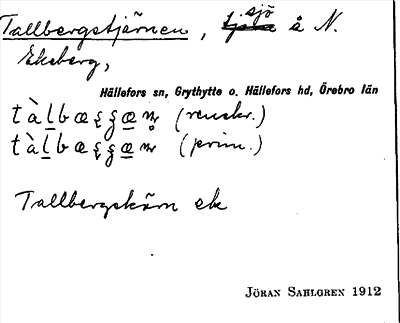 Tallbergstjärnen, sjö å N.
Ekeberg,
Hällefors sn, Grythytte o. Hällefors hd, Örebro län
(renskr.)
(prim.)
Tallbergskärn ek
JÖRAN SAHLGREN 1912